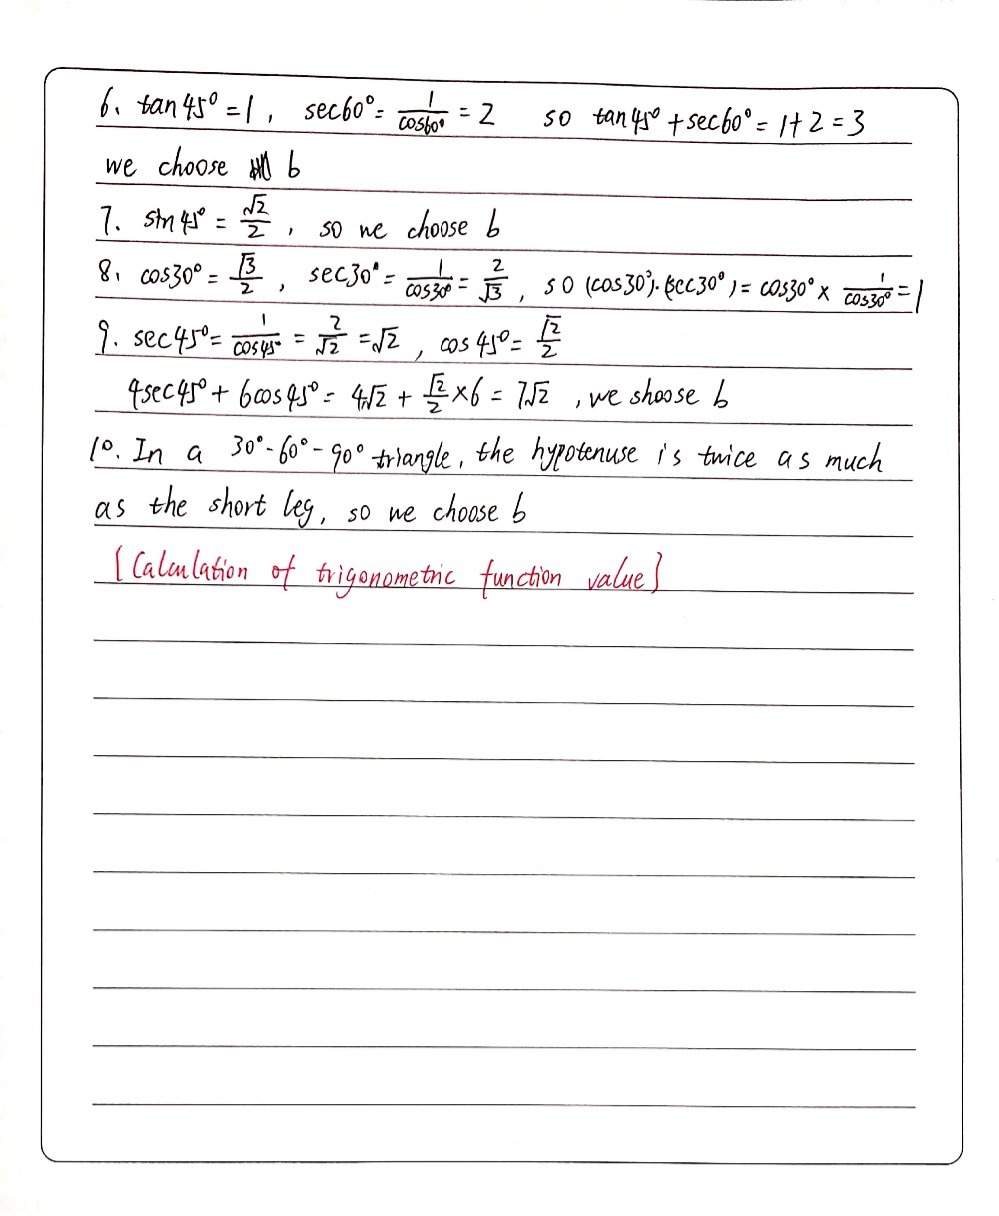 6. tan45° = 1, sec60° = 1/cos60° = 2 so tan45° + sec60° = 1+2 = 3
we choose b
7. sin45° = √2/2, so we choose b
8. cos30° = √3/2, sec30° = 1/cos30° = 2/√3, so (cos30°)·(sec30°) = cos30° × 1/cos30° = 1
9. sec45° = 1/cos45° = 2/√2 = √2, cos45° = √2/2
4sec45° + 6cos45° = 4√2 + √2/2 × 6 = 7√2, we shoose b
10. In a 30°-60°-90° triangle, the hypotenuse is twice as much
as the short leg, so we choose b
[Calculation of trigonometric function value]